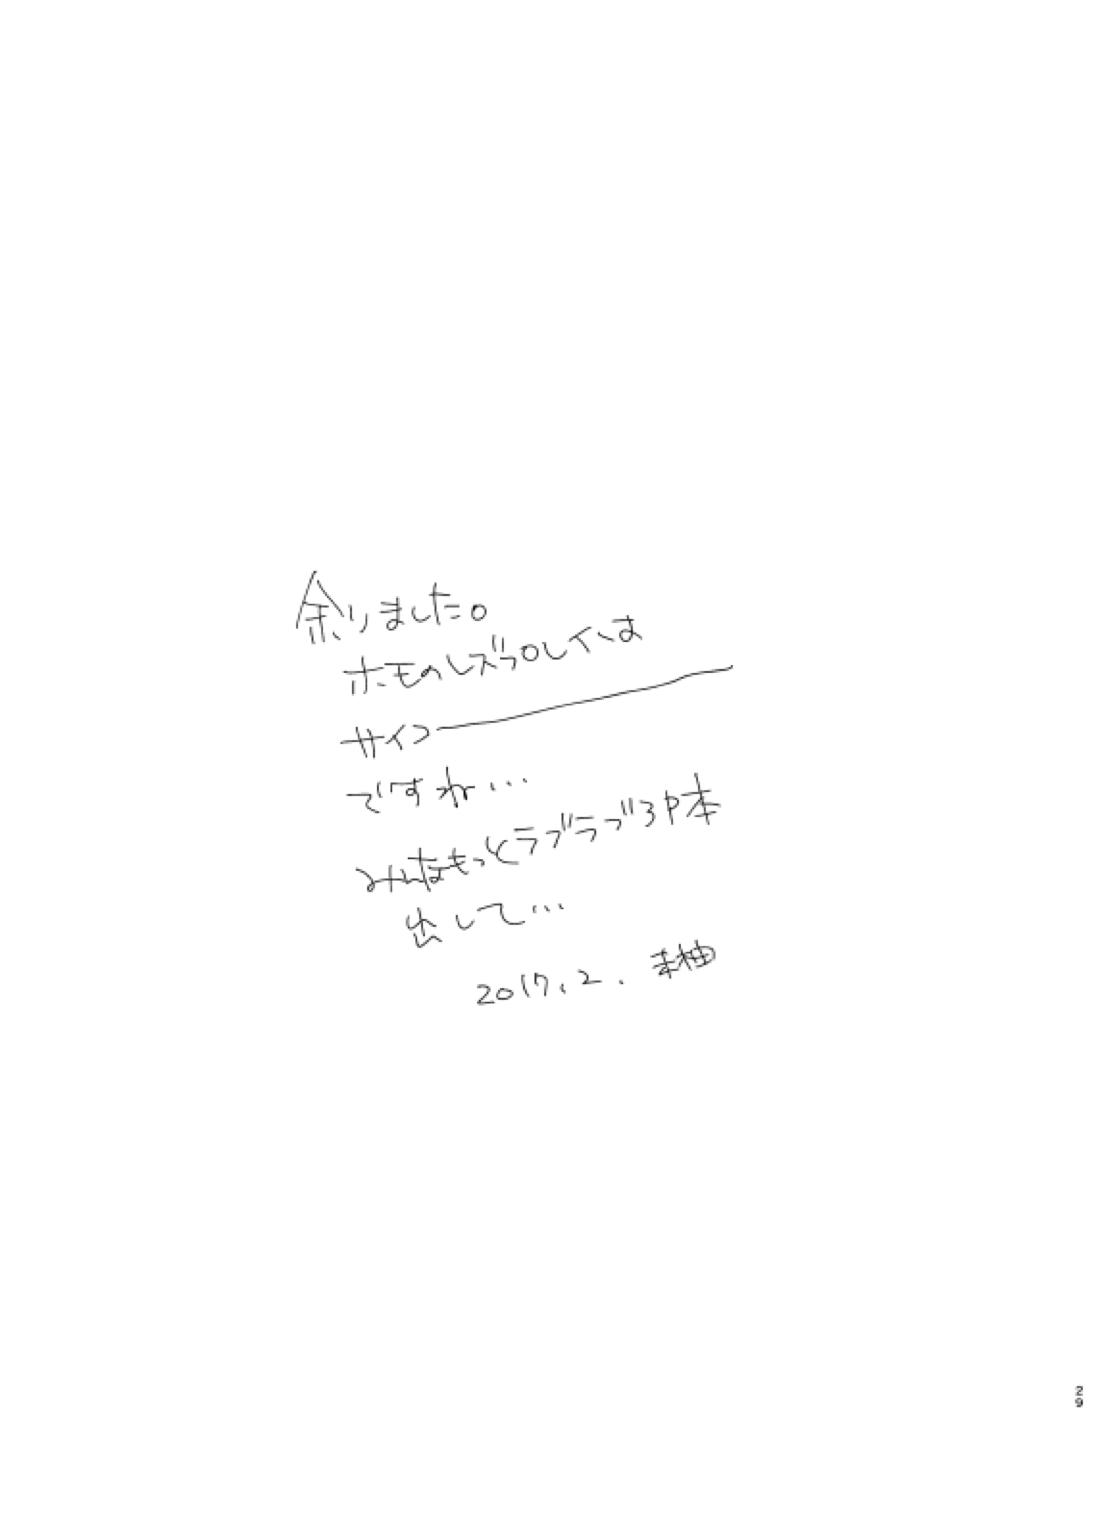 余りました。
ホモのレズプレイは
サイコー
ですね…
みんなもっとラブラブ3P本
出して…
2017.2. 未柚
29